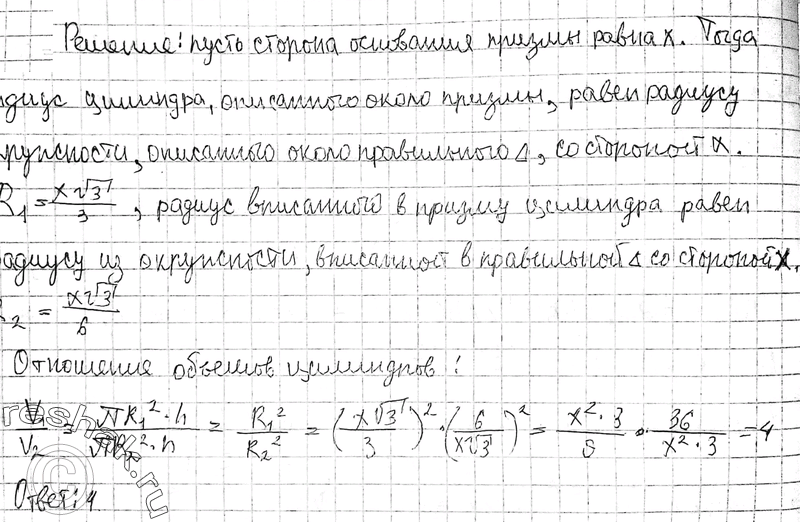 Решение: пусть сторона основания призмы равна x. Тогда
адиус цилиндра, описанного около призмы, равен радиусу
кружности, описанного около правильного Δ, со стороной x.
R₁ = x√3/3, радиус вписанного в призму цилиндра равен
радиусу из окружности, вписанной в правильной Δ со стороной x.
R₂ = x√3/6
Отношения объемов цилиндров:
V₁/V₂ = πR₁²·h/πR₂²·h = R₁²/R₂² = (x√3/3)²·(6/x√3)² = x²·3/9 · 36/x²·3 = 4
Ответ: 4
reshak.ru
©